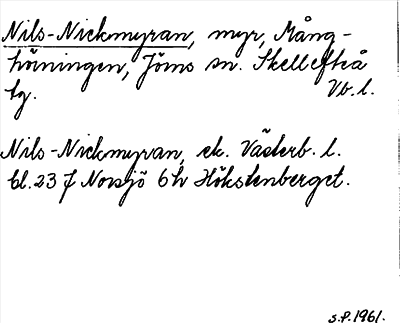 Nils-Nickmyran, myr, Mång-
höiningen, Jörns sn. Skellefteå
tg. Vb. l.
Nils-Nickmyran, ek. Västerb. l.
bl. 23 J Norsjö 6h Hökstenberget.
S.P. 1961.